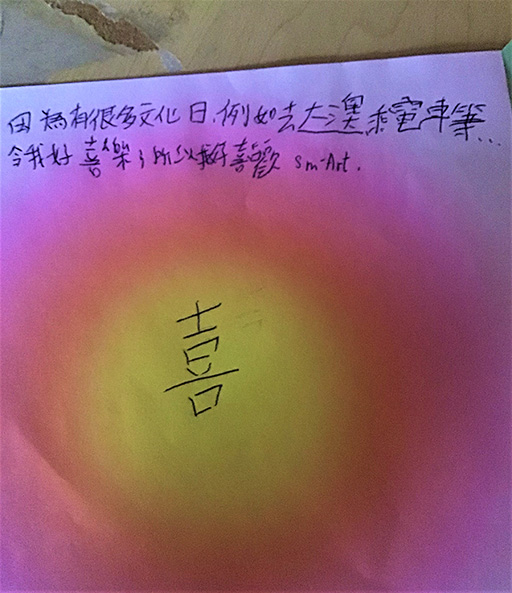 因為有很多文化日,例如去大澳,乘電車等...
令我好喜樂,所以我好喜歡 Sm-Art.
喜